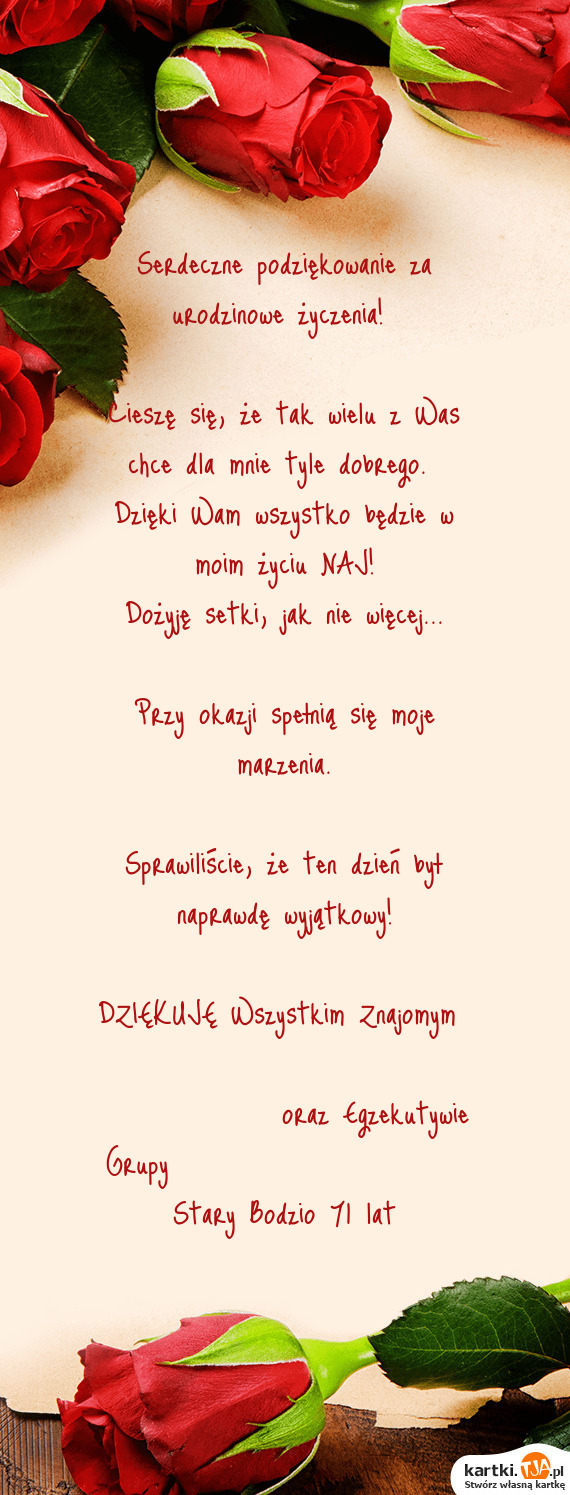 Serdeczne podziękowanie za
urodzinowe życzenia!
Cieszę się, że tak wielu z Was
chce dla mnie tyle dobrego.
Dzięki Wam wszystko będzie w
moim życiu NAJ!
Dożyję setki, jak nie więcej...
Przy okazji spełnią się moje
marzenia.
Sprawiliście, że ten dzień był
naprawdę wyjątkowy!
DZIĘKUJĘ Wszystkim Znajomym
oraz Egzekutywie
Grupy
Stary Bodzio 71 lat
kartki.TJA.pl
Stwórz własną kartkę